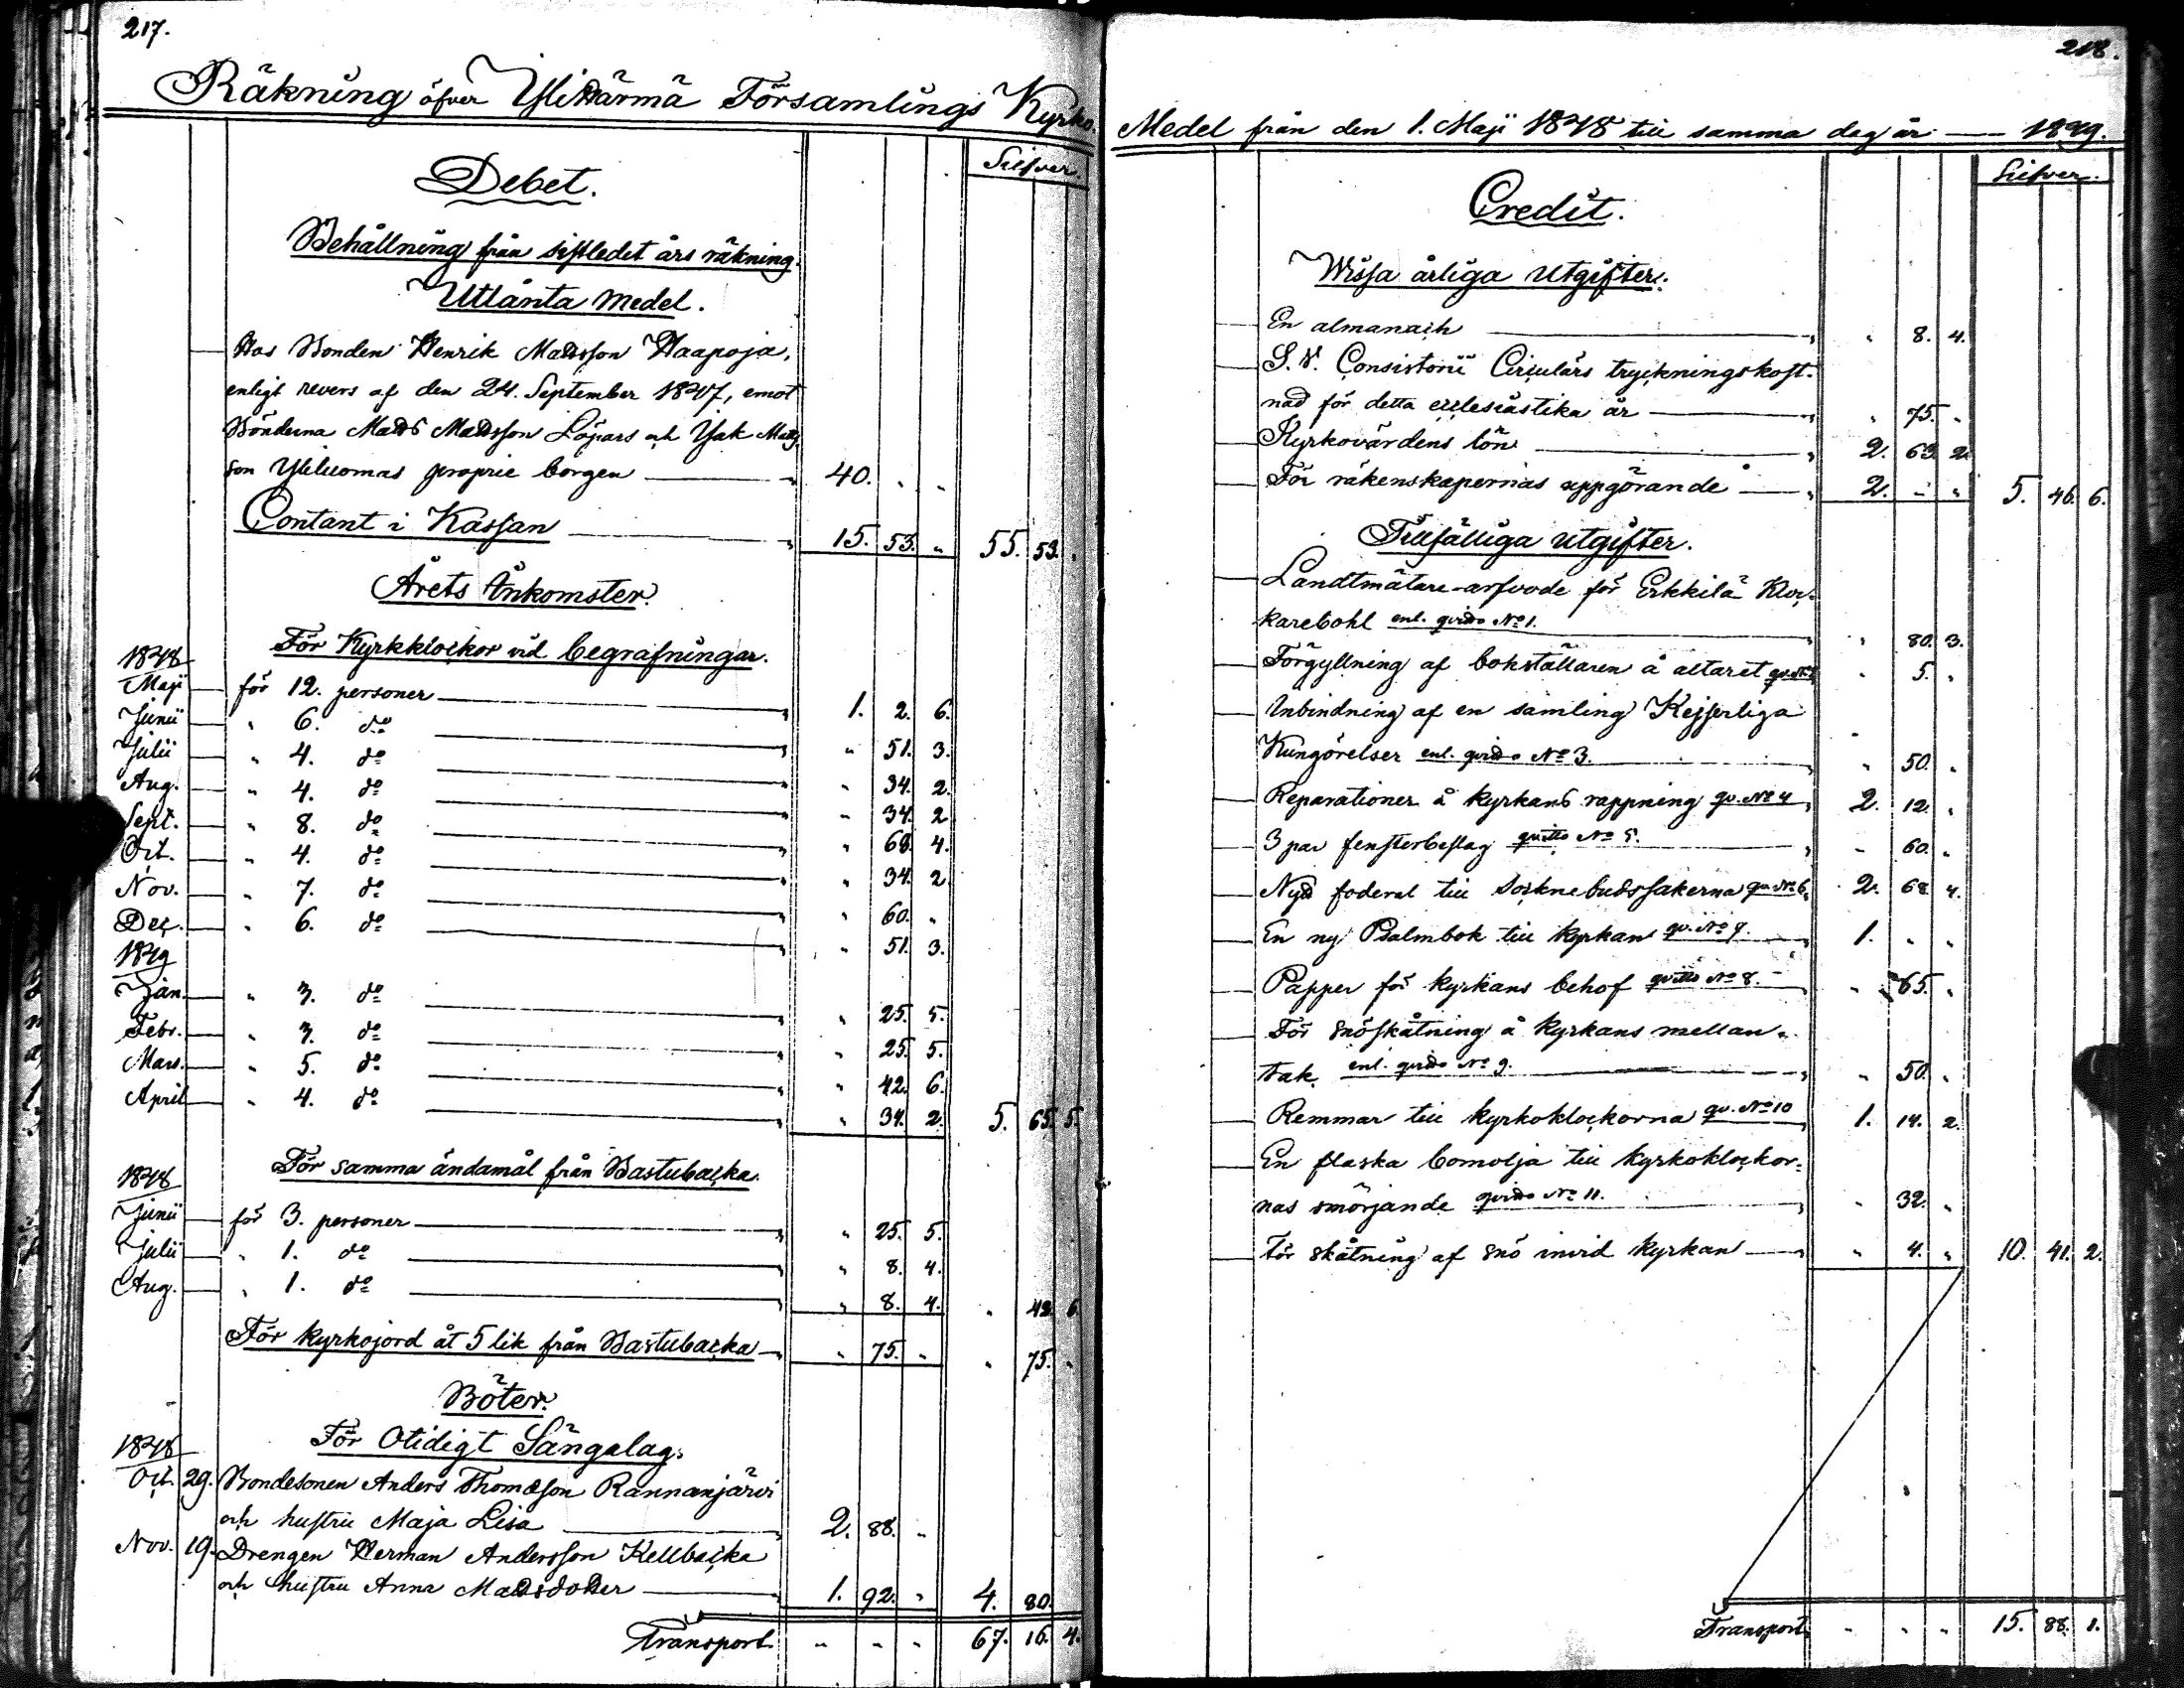 217.
Räkning öfver Ylihärmä Församlings Kyrko-
Silfver.
Debet.
Behållning från sistledet års räkning.
Utlånta medel.
Hos Bonden Henrik Mattsson Haapoja,
enligt revers af den 24. September 1847, emot
Bönderna Matts Mattsson Löpars och Isak Matts
son Yliluomas proprie borgen 40. " "
Contant i Kassan 15. 53. " 55. 53. "
Årets Inkomster.
För Kyrkklockor vid begrafningar.
1848
Maji för 12. personer 1. 2. 6.
Junii " 6. do " 51. 3.
Julii " 4. do " 34. 2.
Aug. " 4. do " 34. 2
Sept. " 8. do " 68. 4.
Oct. " 4. do " 34. 2
Nov. " 7. do " 60. "
Dec. " 6. do " 51. 3.
1849
Jan. " 3. do " 25. 5.
Febr. " 3. do " 25. 5.
Mars. " 5. do " 42. 6.
April " 4. do " 34. 2. 5. 65. 5.
För samma ändamål från Bastubacka.
1848
Junii för 3. personer " 25. 5.
Julii " 1. do " 8. 4.
Aug. " 1. do " 8. 4. " 42. 6
För kyrkojord åt 5 lik från Bastubacka " 75. " " 75. "
Böter.
För Otidigt Sängalag.
1848
Oct. 29. Bondesonen Anders Thomasson Rannanjärvi
och hustru Maja Lisa 2. 88. "
Nov. 19. Drengen Herman Andersson Kellbacka
och hustru Anna Mattsdotter 1. 92. " 4. 80.
Transport " " " 67. 16. 4.
218.
Medel från den 1. Maji 1848 till samma dag år 1849.
Silfver.
Credit.
Wissa årliga utgifter.
En almanach " 8. 4.
S. V. Consistorii Circulärs tryckningskost-
nad för detta ecclesiastika år " 75. "
Kyrkovärdens lön 2. 63. 2.
För räkenskapernas uppgörande 2. " " 5. 46. 6.
Tillfälliga utgifter.
Landtmätare-arfvode för Erkkilä Kloc-
karebohl enl. qvitto No 1. " 80. 3.
Förgyllning af bokställaren å altaret qv. No 2 " 5. "
Inbindning af en samling Kejserliga
Kungörelser enl. qvitto No 3. " 50. "
Reparationer å kyrkans rappning qv. No 4 2. 12. "
3 par fensterbeslag qvitto No 5. " 60. "
Nytt foderal till socknebudssakerna qv. No 6. 2. 68. 4.
En ny Psalmbok till kyrkan qv. No 7. 1. " "
Papper för kyrkans behof qvitto No 8. " 65. "
För snöskåtning å kyrkans mellan-
tak enl. qvitto No 9. " 50. "
Remmar till kyrkoklockorna qv. No 10 1. 14. 2.
En flaska bomolja till kyrkoklockor-
nas smörjande qvitto No 11. " 32. "
För skåtning af snö invid kyrkan " 4. " 10. 41. 2.
Transport " " " 15. 88. 1.